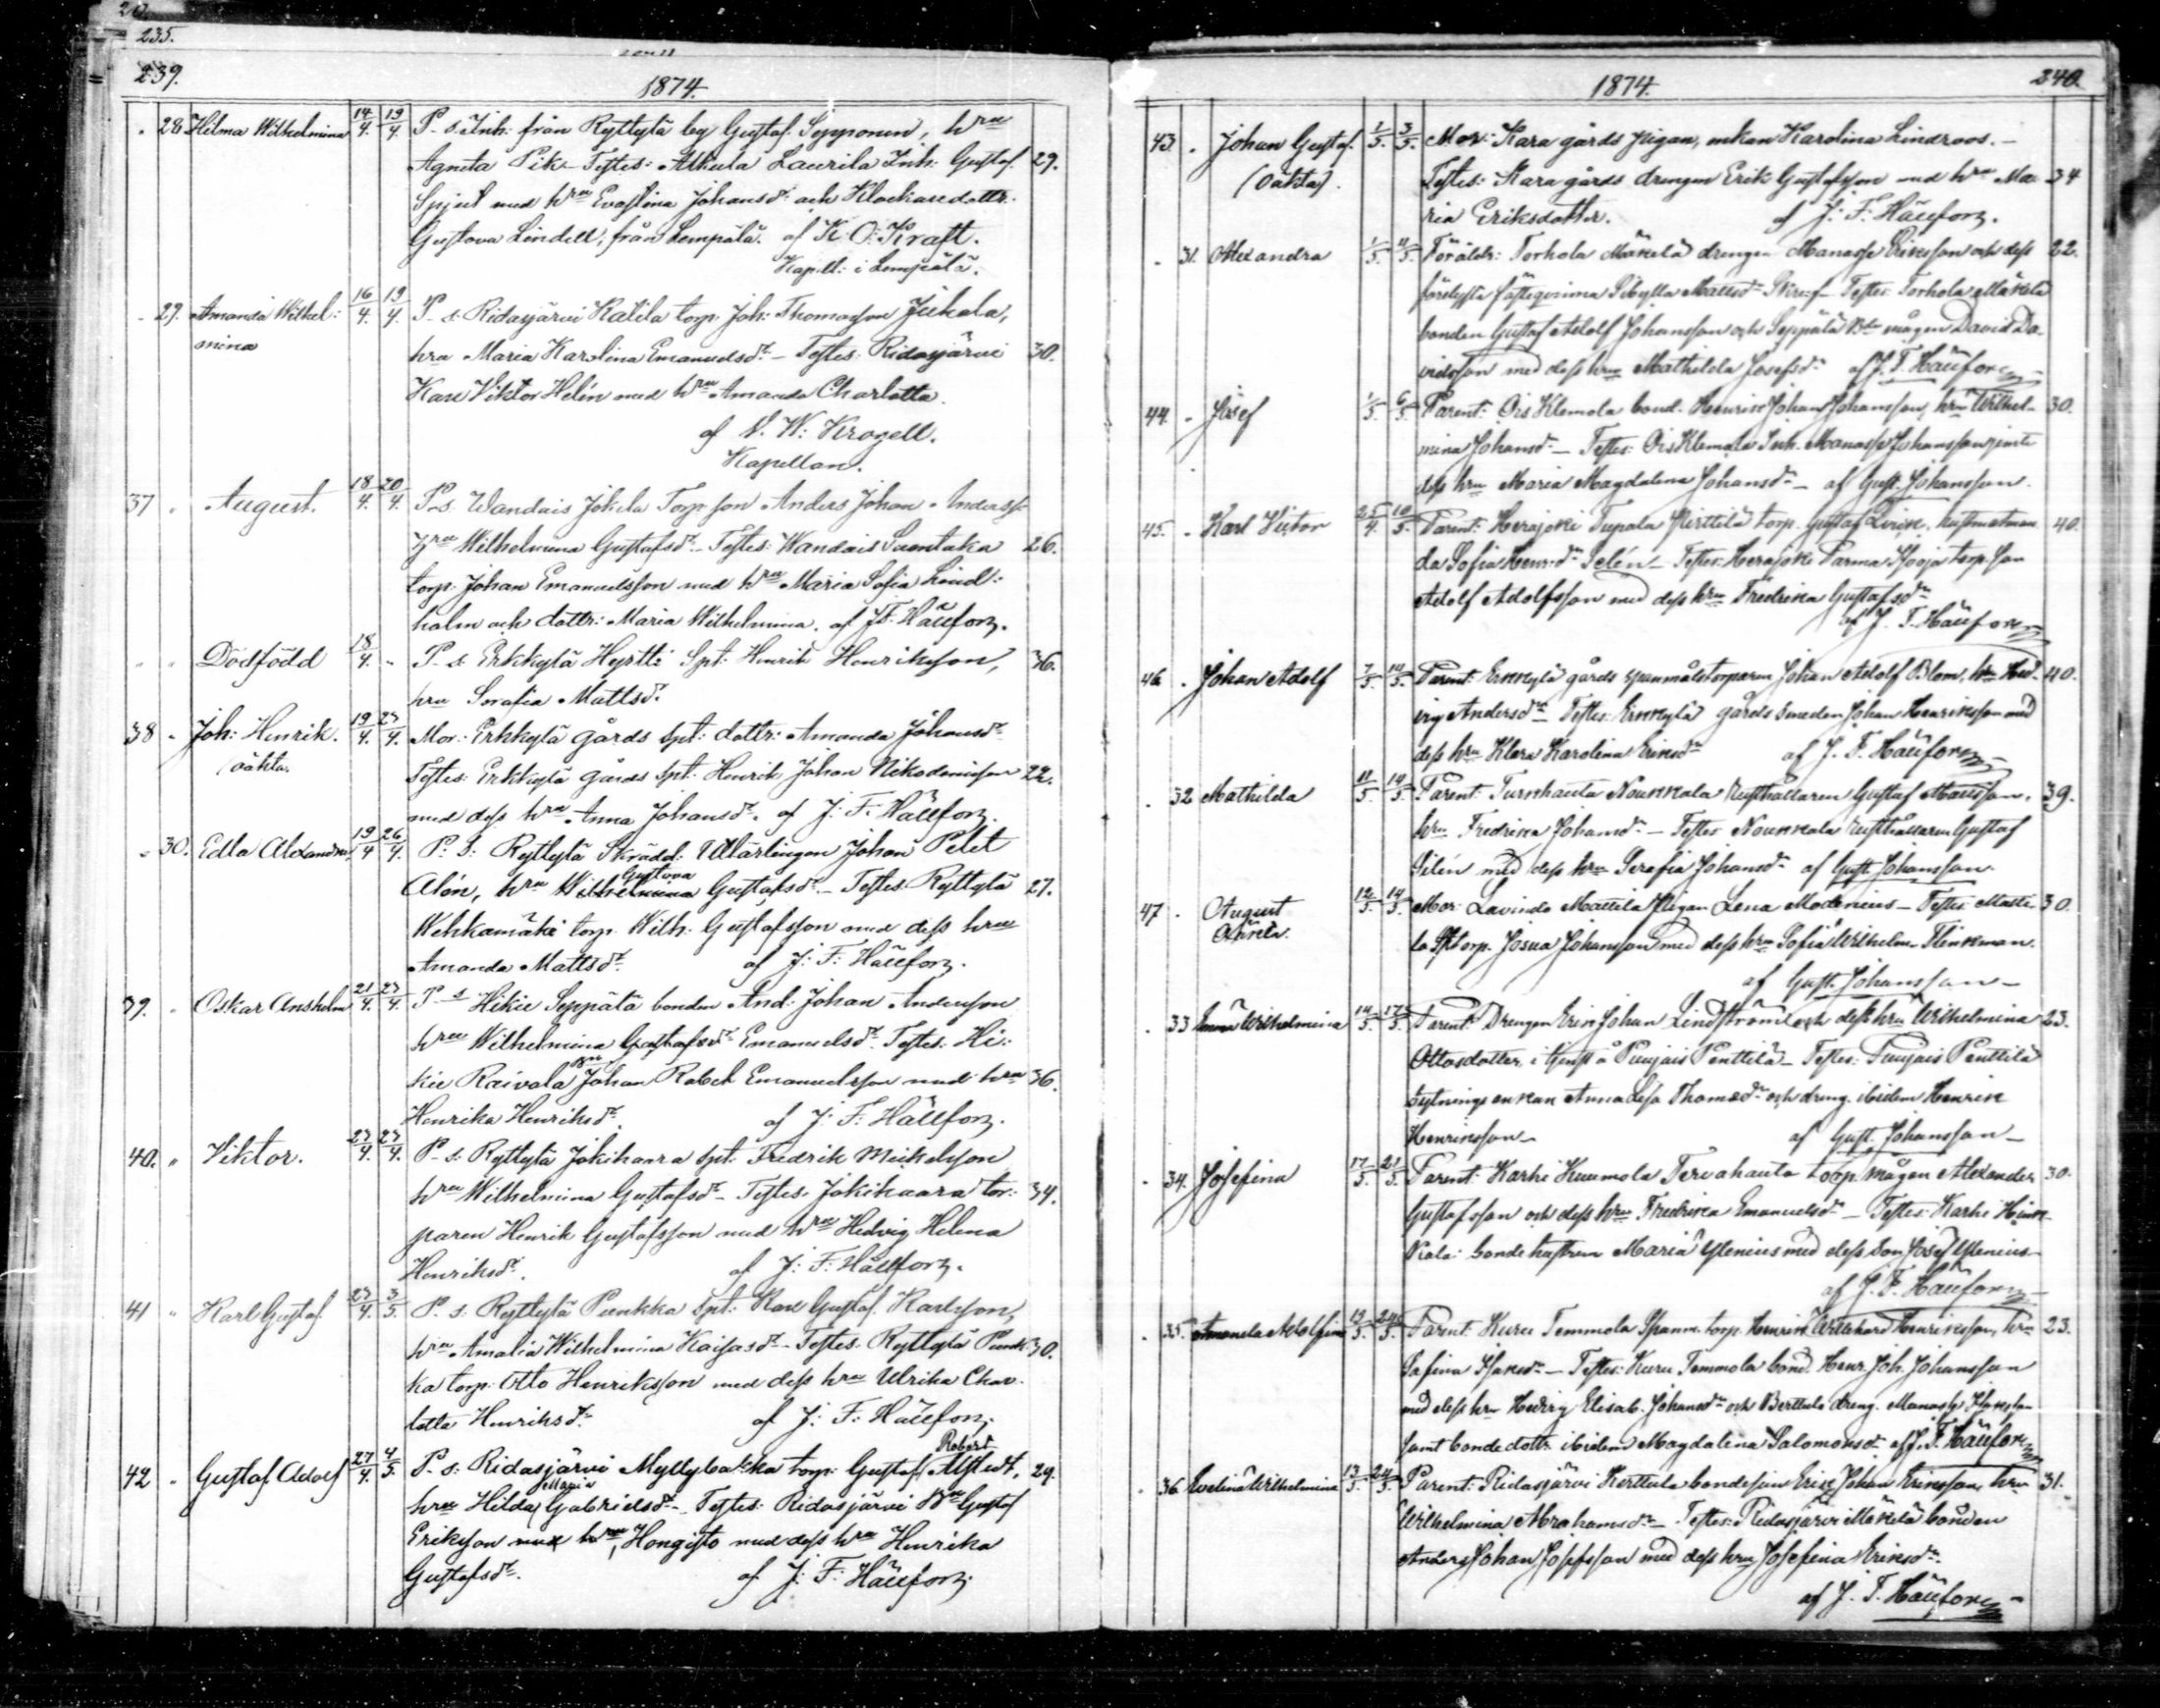 20.
235.
239.
1874.
28 Hilma Wilhelmina 14/4. 19/4. P-s. Inh: från Ryttylä by Gustaf Sepponen, hru
Agneta Pik- Testes: Alkula Laurila Inh: Gustaf 29.
med hru Evastina Johansdr och Klockaredottr.
Gustava Lindell, från Lempälä. af K. O. Kraft.
Kapell: i Lempälä.
29. Amanda Wilhel: 16/4. 19/4. P- s. Ridasjärvi Katila torp: Joh: Thomasson Jukala,
mina
hru Maria Karolina Emanuelsdr - Testes: Ridasjärvi 30.
Karl Viktor Helén med hru Amanda Charlotta.
af V. W: Krogell.
Kapellan.
37 August. 18/4. 20/4. P-s. Wandais Jokela Torp son Anders Johan Anderss:
hru Wilhelmina Gustafsdr - Testes: Wandais Suontaka 26.
torp: Johan Emanuelsson med hru Maria Sofia Lind:
holm och dottr: Maria Wilhelmina. af J. F. Hällfors.
Dödfödd 18/4. - P- s. Erkkylä Hyrtti Spt: Henrik Henriksson, 36.
hru Serafia Mattsdr
38 Joh: Henrik. 19/4. 23/4. Mor: Erkkylä gårds spt: dottr: Amanda Johansdr
oäkta.
Testes: Erkkylä gårds spt: Henrik Johan Nikodemusson 22.
med dess hru Anna Johansdr. af J: F: Hällfors.
30. Edla Alexandra 19/4 26/4. P: s: Ryttylä Skrädd: Johan Petet
Gustava
Alén, hru Wilhelmina Gustafsdr - Testes: Ryttylä 27.
Wehkamäki torp. Wilh: Gustafsson med dess hru
Amanda Mattsdr. af J: F: Hällfors.
39. Oskar Anshelm 21/4. 23/4. P- s Hikie Seppälä bonden And: Johan Andersson
hru Wilhelmina Gustafsdr Emanuelsdr. Testes: Hi:
kie Raivala Johan Robert Emanuelsson med hru 36.
Henrika Henriksdr. af J: F: Hällfors.
40. Viktor. 23/4. 23/4. P- s. Ryttylä Jokihaara spt: Fredrik Mickelsson
hru Wilhelmina Gustafsdr - Testes: Jokihaara tor: 34.
paren Henrik Gustafsson med hru Hedvig Helena
Henriksdr. af J: F: Hällfors.
41 Karl Gustaf 23/4. 3/5. P. s. Ryttylä Punkka spt: Karl Gustaf Karlsson,
hru Amalia Wilhelmina Kaisasdr - Testes: Ryttylä Punk 30.
ka torp: Otto Henriksson med dess hru Ulrika Char:
lotta Henriksdr af J: F: Hällfors.
Robert
42 Gustaf Adolf 27/4. 4/5. P. s: Ridasjärvi Myllybacka torp: Gustaf Alstedt, 29.
Maria
hru Hilda Gabrielsdr - Testes: Ridasjärvi Gustaf
Eriksson med hru Hongisto med dess hru Henrika
Gustafsdr. af J: F: Hällfors.
1874.
240.
43. Johan Gustaf 1/5. 3/5. Mor: Kara gårds pigan, enkan Karolina Lindroos. -
(Oäkta). Testes: Kara gårds drengen Erik Gustafsson med hru Ma- 34
ria Eriksdotter. af J: F: Hällfors.
31. Alexandra 1/5. Föräldr: Torhola Mäkelä drengen Manasse Eriksson och dess 22.
fästeqvinna Sibylla Mattsdr - Testes: Torhola Mäkelä
bonden Gustaf Adolf Johansson och Seppälä mågen David Da-
vidsson med dess hru Mathilda Josefsdr af J. F. Hällfors
44. Josef 1/5. 6/5. Parent: Ois Klemola bond. Henrik Johan Johansson, hru Wilhel- 30.
mina Johansdr - Testes: Ois Klemola Inh. Manasse Johansson jemte
dess hru Maria Magdalena Johansdr - af Gust. Johansson.
45. Karl Victor 25/4. 10/5. Parent: Herajoki Tupala Kirttilä torp. Gustaf 40.
da Sofia Henr.dr Selén - Testes: Herajoki Parma torp. son
Adolf Adolfsson med dess hru Fredrika Gustafsdr
af J. F. Hällfors
46. Johan Adolf 7/5. 14/5. Parent: Erkkylä gårds spanmålstorparen Johan Adolf Blom, hru Hed- 40.
vig Andersdr Testes: Erkkylä gårds smeden Johan Henriksson med
dess hru Klara Karolina Eriksdr af J. F. Hällfors
32 Mathilda 11/5. 14/5. Parent: Turkhauta Nounkala Rusthållaren Gustaf Mattsson, 39.
hru Fredrika Johansdr - Testes Nounkala Rusthållaren Gustaf
Silén med dess hru Serafia Johansdr af Gust. Johansson.
47. August 12/5. 14/5. Mor: Lavinto Mattila Pigan Lena Modenius - Testes Matti- 30.
la torp. Josua Johansson med dess hru Sofia Wilhelm. Flinkman.
af Gust. Johansson -
33 Emma Wilhelmina 14/5. 17/5. Parent: Drengen Erik Johan Lindström och dess hru Wilhelmina 23.
Ottosdotter i tjenst å Punjais Penttilä - Testes: Punjais Penttilä
enkan Anna Lisa Thomasdr och dreng. ibidem Henrik
Henriksson - af Gust. Johansson -
34. Josefina 17/5. 21/5. Parent: Karhi Kuumola Tervahauta torp. mågen Alexander 30.
Gustafsson och dess hru Fredrika Emanuelsdr - Testes: Karhi
bonde hustrun Maria Ylenius med dess son Josef Ylenius
af J. F. Hällfors
35. Amanda Adolfina 12/5. 24/5. Parent: Kuru Temmola Spanm. torp. Henrik Willehard Henriksson, hru 23.
Safina Isaksdr - Testes: Kuru Temmola bond. Henr. Joh. Johansson
med dess hru Hedvig Elisab. Johansdr och Berttula dreng. Manasse
samt bonde dottr. ibidem Magdalena Salomonsdr af J. F. Hällfors
36. Evelina Wilhelmina 13/5. 24/5. Parent: Ridasjärvi Kerttula bondeson Erik Johan Eriksson, hru 31.
Wilhelmina Abrahamsdr - Testes: Ridasjärvi Mäkelä bonden
Anders Johan Josefsson med dess hru Josefina Eriksdr.
af J. F. Hällfors